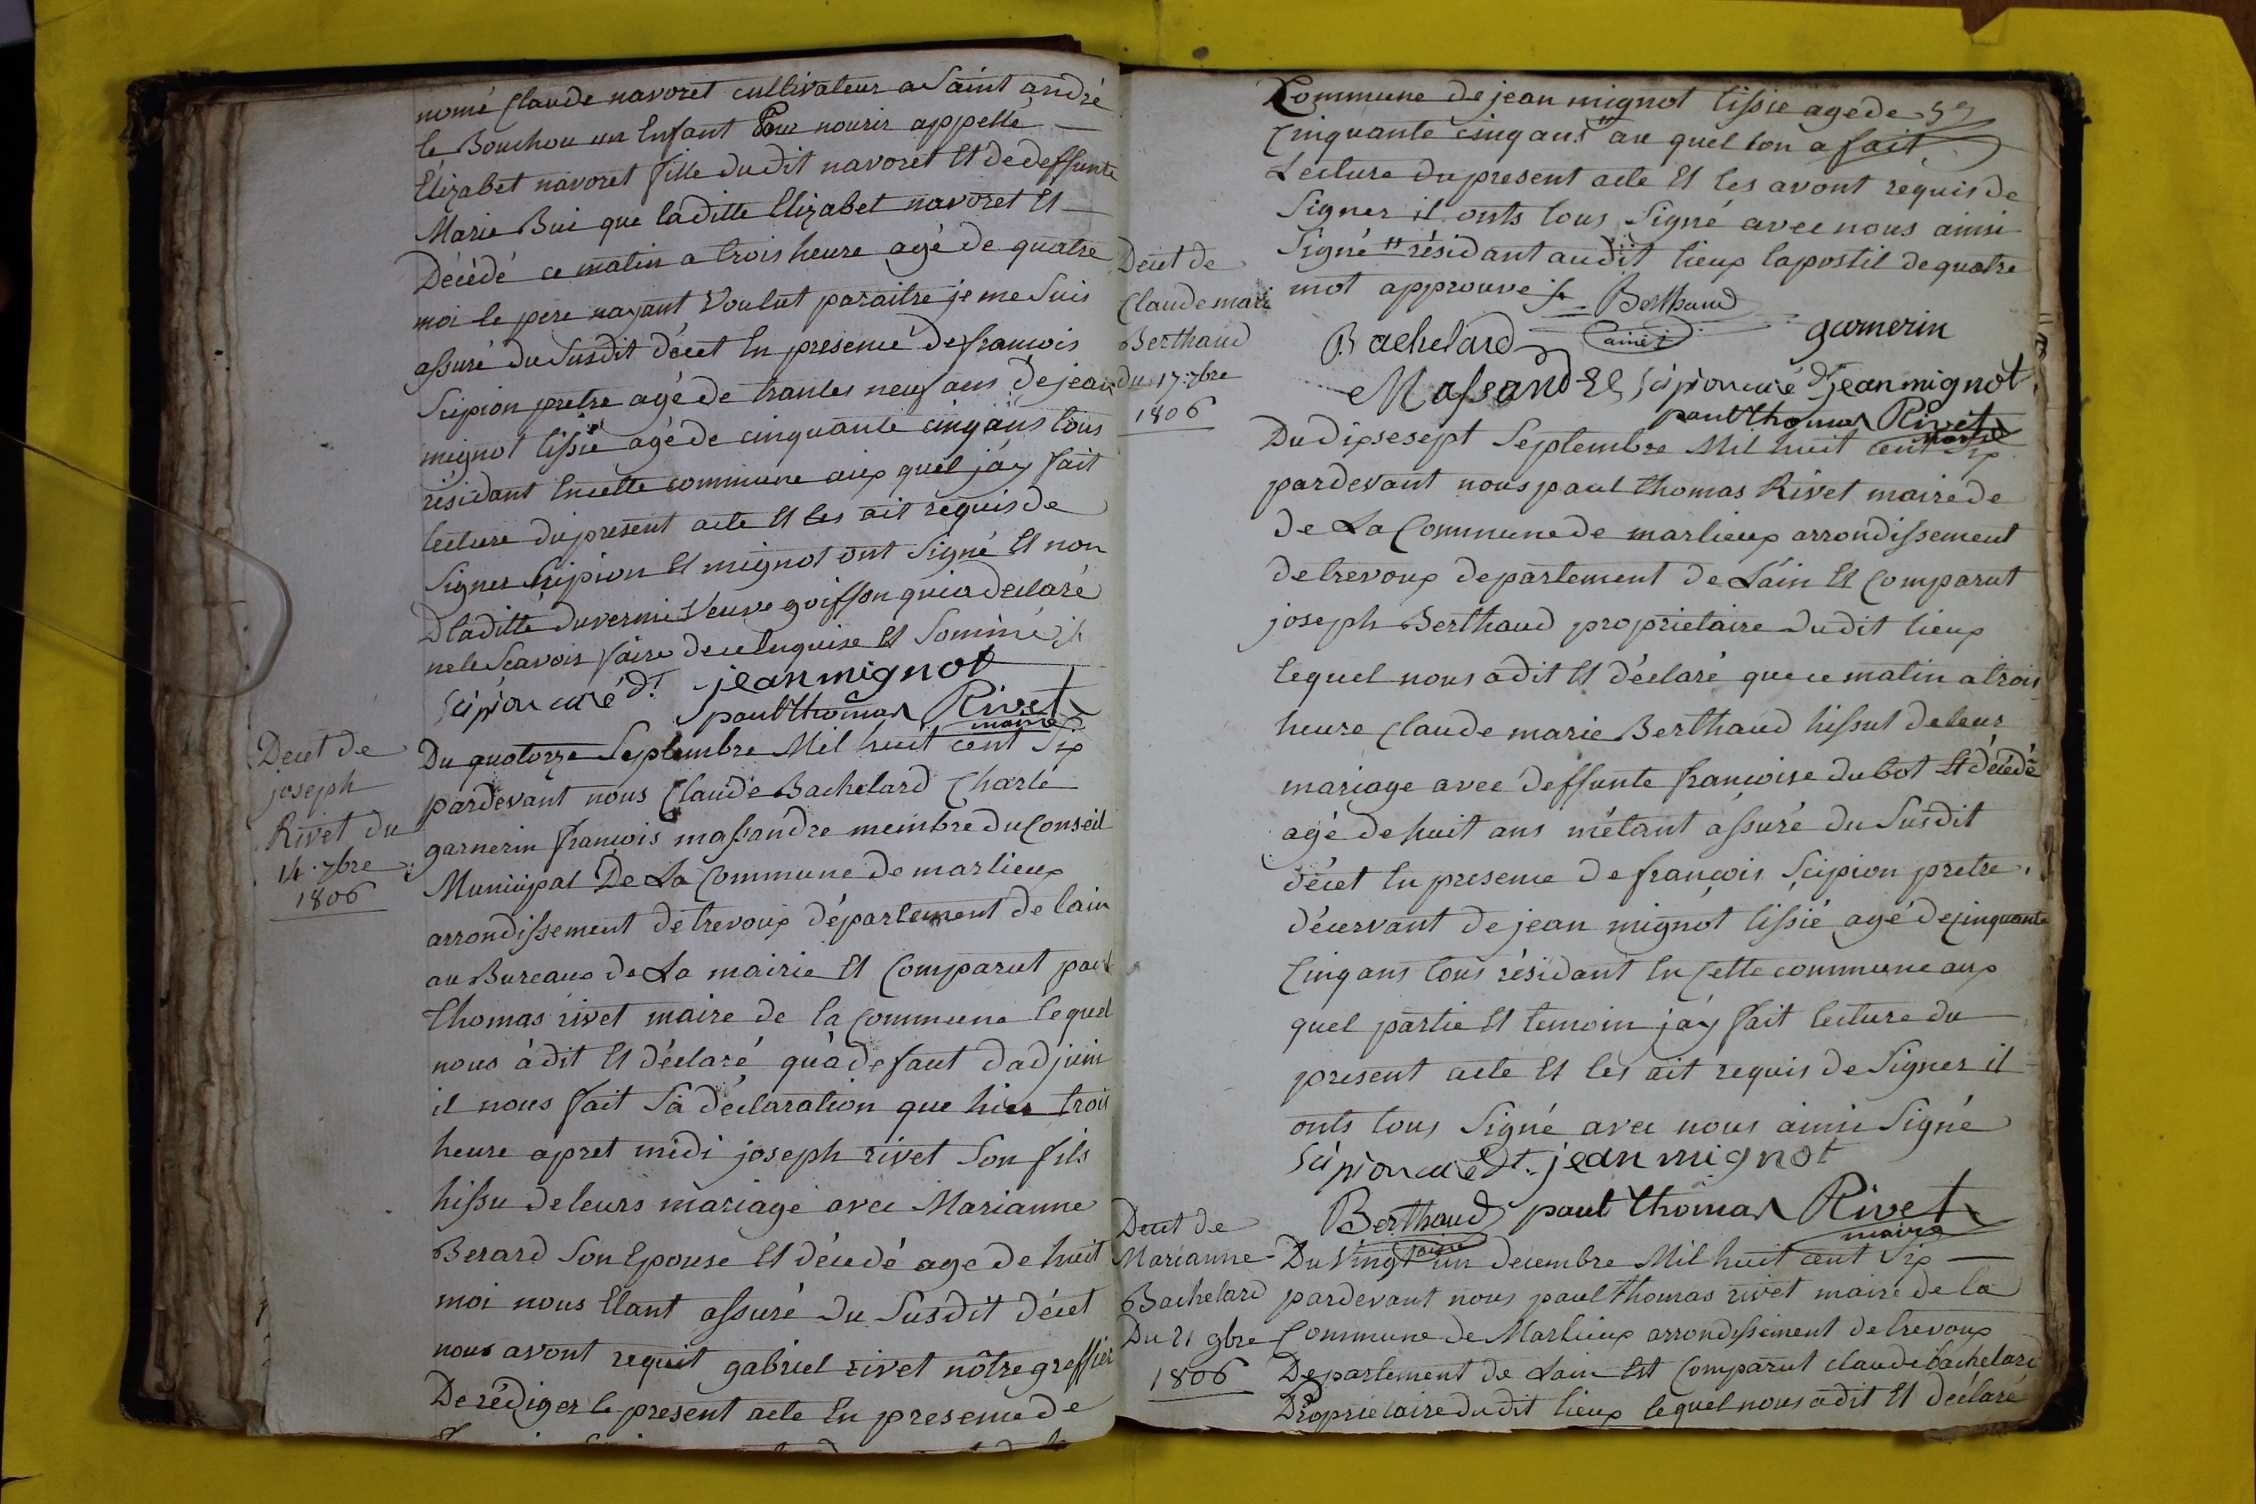 nomé Claude navoret cultivateur a Saint andré
le Bouchou un Enfant Pour nourir appellé
Elizabet navoret fille dudit navoret Et de deffunte
Marie Bui que laditte Elizabet navoret Et
Décédé ce matin a trois heure agé de quatre
moi le pere nayant Voulut paraitre je me Suis
assuré du Susdit décet En presence de francois
Scipion pretre agé de trantes neuf ans de jean
mignot tissié agé de cinquante cinq ans tous
résidant En cette commune aux quel jáy fait
lecture du présent acte Et les ait requis de
Signer Scipion Et mignot ont Signé Et non
laditte duverni Veuve goiffon qui a déclaré
ne le Scavoir faire de ce Enquise Et Sommé
Scipion curé dt jean mignot
paul thomas Rivet
maire
Decet de
joseph
Rivet du
14 7bre
1806
Du quatorze Septembre Mil huit cent Six
pardevant nous Claude Bachelard Charle
garnerin francois massandre membre du Conseil
Municipal De La Commune de marlieux
arrondissement de trevoux département de lain
au Bureaux de La mairie Et Comparut paul
thomas rivet maire de la Commune lequel
nous à dit Et déclaré quà defaut dadjoin
il nous fait Sa déclaration que hier trois
heure apret midi joseph rivet Son fils
hissu de leurs mariage avec Marianne
Berard Son Epouse Et décédé age de huit
moi nous Etant assuré du Susdit décet
nous avont requit gabriel rivet nôtre greffier
De rédiger le présent acte En presence de
Commune de jean mignot tissie age de
Cinquante cinq ans" au quel lon a fait
Lecture du present acte Et les avont requis de
Signer il onts tous Signé avec nous ainsi
Signé " résidant audit lieux lapostil de quatre
mot approuve
Berthaud
ainé
Bachelard
garnerin
Massandre Scipion curé dt jean mignot
paul thomas Rivet
maire
Decet de
Claude mari
Berthaud
du 17 7bre
1806
Du dixsesept Septembre Mil huit cent Six
pardevant nous paul thomas Rivet maire de
de La Commune de marlieux arrondissement
de trevoux departement de Láin Et Comparut
joseph Berthaud proprietaire dudit lieux
lequel nous a dit Et déclaré que ce matin a trois
heure Claude marie Berthaud hissut de leur
mariage avec deffunte francoise dubot Et décédé
agé de huit ans métant assuré du Susdit
décet En presence de francois Scipion pretre
décervant de jean mignot tissié agé de Cinquante
Cinq ans tous résidant En Cette commune aux
quel partie Et temoin jáy fait lecture du
present acte Et les ait requis de Signer il
onts tous Signé avec nous ainsi Signé
Scipion curé dt. jean mignot
Berthaud paul thomas Rivet
ainé maire
Decet de
Marianne
Bachelard
Du 21 9bre
1806
Du Vingt un decembre Mil huit cent Six
pardevant nous paul thomas rivet maire de la
Commune de Marlieux arrondissement de trevoux
Departement de Lain Est Comparut claude bachelard
Proprietaire dudit lieux lequel nous a dit Et déclaré